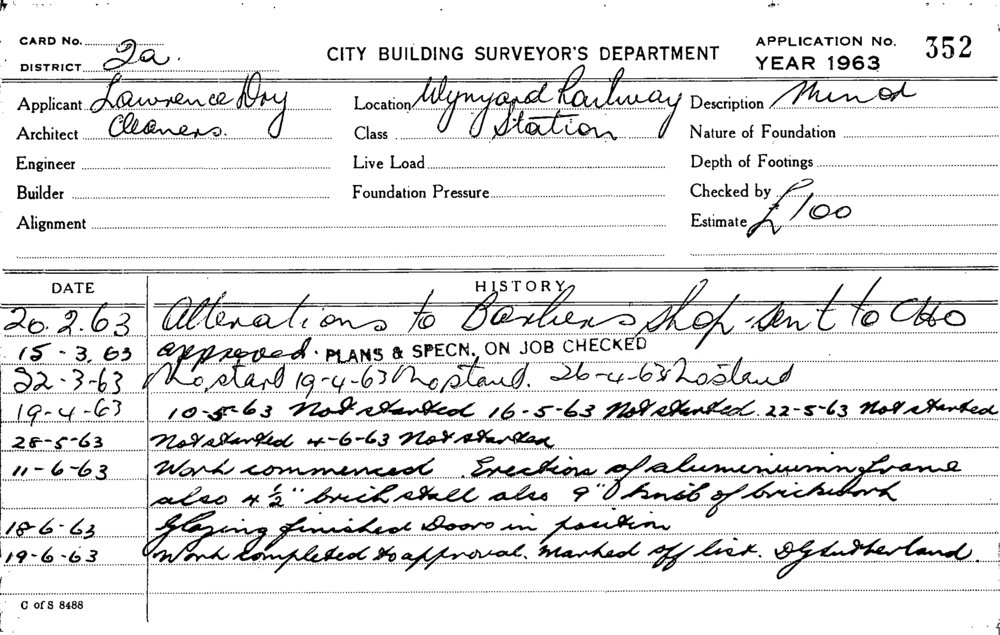 CARD No.
DISTRICT 2a.
CITY BUILDING SURVEYOR'S DEPARTMENT
APPLICATION No. 352
YEAR 1963
Applicant Lawrence Dry
Architect Cleaners.
Engineer
Builder
Alignment
Location Wynyard Railway
Class Station
Live Load
Foundation Pressure
Description Minor
Nature of Foundation
Depth of Footings
Checked by
Estimate £100
DATE HISTORY
20.2.63 Alterations to Barbers shop - sent to CHO
15-3.63 approved. PLANS & SPECN. ON JOB CHECKED
22-3-63 No start 19-4-63 No start. 26-4-63 No start
19-4-63 10-5-63 Not started 16-5-63 Not started. 22-5-63 Not started
28-5-63 Not started 4-6-63 Not started
11-6-63 Work commenced Erection of aluminiumn frame
also 4½" brick stall also 9" knib of brickwork
18-6-63 Glazing finished Doors in position
19-6-63 Work completed to approval. Marked off list. DGSutherland.
C of S 8488